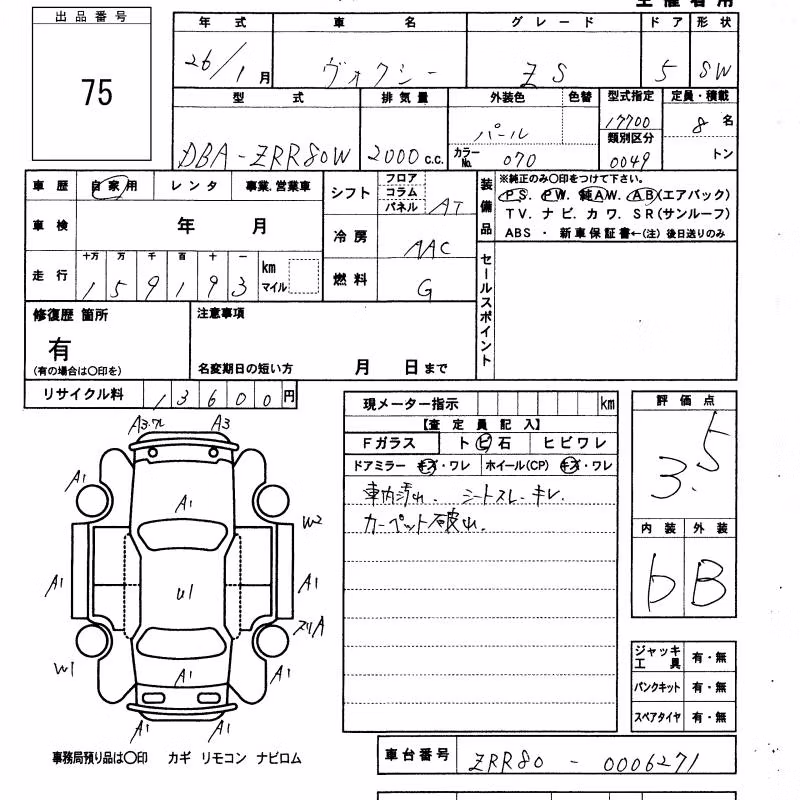 出品番号
75
年式 車名 グレード ドア 形状
26/1月 ヴォクシー ZS 5 SW
型式 排気量 外装色 色替 型式指定 定員・積載
DBA-ZRR80W 2000c.c. パール 17700 8名
カラーNo. 070 類別区分 0049 トン
車歴 自家用 レンタ 事業.営業車
車検 年 月
走行 十万 万 千 百 十 一
159193 km マイル
シフト フロア コラム パネル AT
冷房 AAC
燃料 G
装備品
※純正のみ〇印をつけて下さい。
PS. PW. 純AW. AB(エアバック)
TV. ナビ. カワ. SR(サンルーフ)
ABS ・ 新車保証書←(注) 後日送りのみ
セールスポイント
修復歴 箇所
有
(有の場合は〇印を)
注意事項
名変期日の短い方 月 日まで
リサイクル料 13600円
現メーター指示 km
【査定員記入】
Fガラス トビ石 ヒビワレ
ドアミラー キズ・ワレ ホイール(CP) キズ・ワレ
車内汚れ. シートスレ・キレ.
カーペット破れ.
評価点
3.5
内装 外装
b B
ジャッキ工具 有・無
パンクキット 有・無
スペアタイヤ 有・無
A3.ワレ A3
A1
A1
W2
A1 U1 A1
ズリA
W1
A1 A1
A1 A1
事務局預り品は〇印 カギ リモコン ナビロム
車台番号 ZRR80 - 0006271